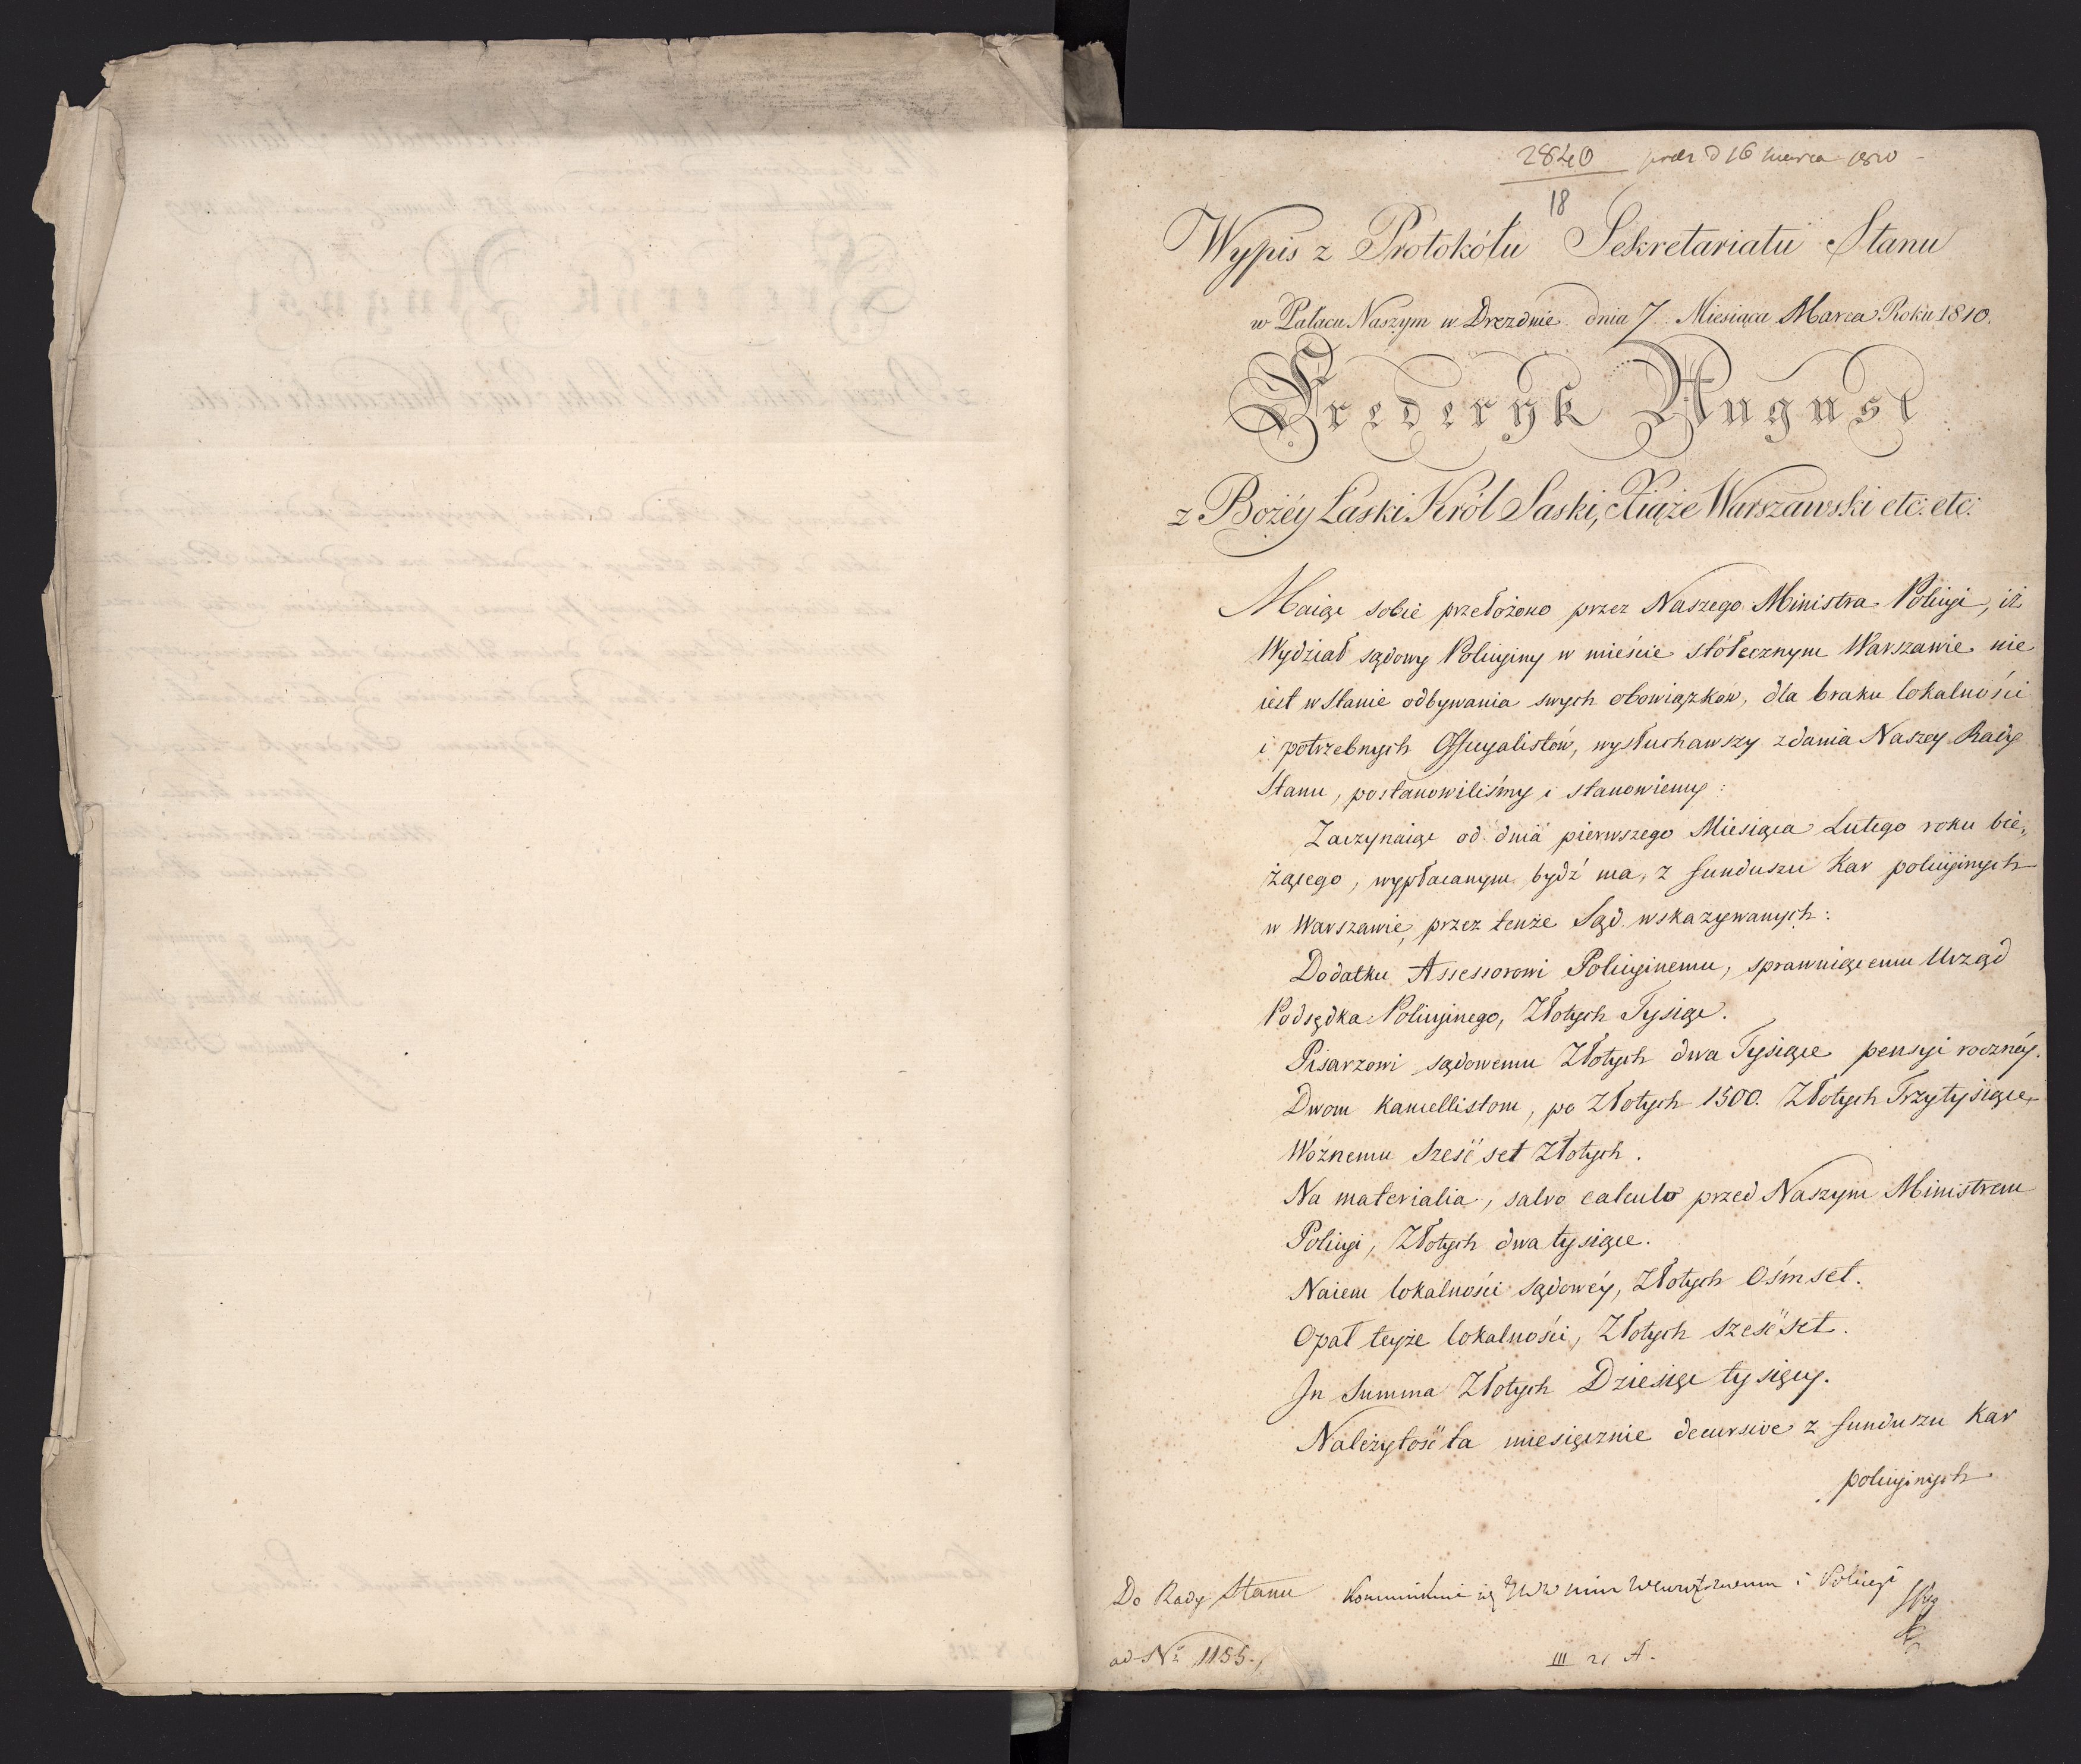 2840 d 16 marca 1810
18
Wypis z Protokółu Sekretariatu Stanu
w Pałacu Naszym w Dreznie dnia 7. Miesiąca Marca Roku 1810.
Frederyk August
z Bożéy Łaski Król Saski, Xiąże Warszawski etc: etc:
Maiąc sobie przełożono przez Naszego Ministra Policyi, iż
Wydział sądowy Policyiny w mieście stółecznym Warszawie nie
iest w stanie odbywania swych obowiązków, dla braku lokalności
i potrzebnych Officyalistów, wysłuchawszy zdania Naszey Rady
Stanu, postanowiliśmy i stanowiemy:
Zaczynaiąc od dnia pierwszego Miesiąca Lutego roku bie„
żącego, wypłacanym bydź ma, z funduszu Kar policyinych
w Warszawie, przez tenże Sąd wskazywanych:
Dodatku Assessorowi Policyinemu, sprawuiącemu Urząd
Podsędka Policyinego, Złotych Tysiąc.
Pisarzowi sądowemu Złotych dwa Tysiące pensyi roczney.
Dwom kancellistom, po Złotych 1500. Złotych Trzy tysiące,
Woźnemu Sześć set Złotych.
Na materialia, salvo calculo przed Naszym Ministrem
Policyi, Złotych dwa tysiące.
Naiem lokalności sądowéy, Złotych Ośmset.
Opał teyże lokalności, Złotych sześćset.
In Summa Złotych Dziesięć tysięcy.
Należytość ta miesięcznie decursive z funduszu Kar
policyinych
Do Rady Stanu i Policyi
ad Nº 1155.
III A.